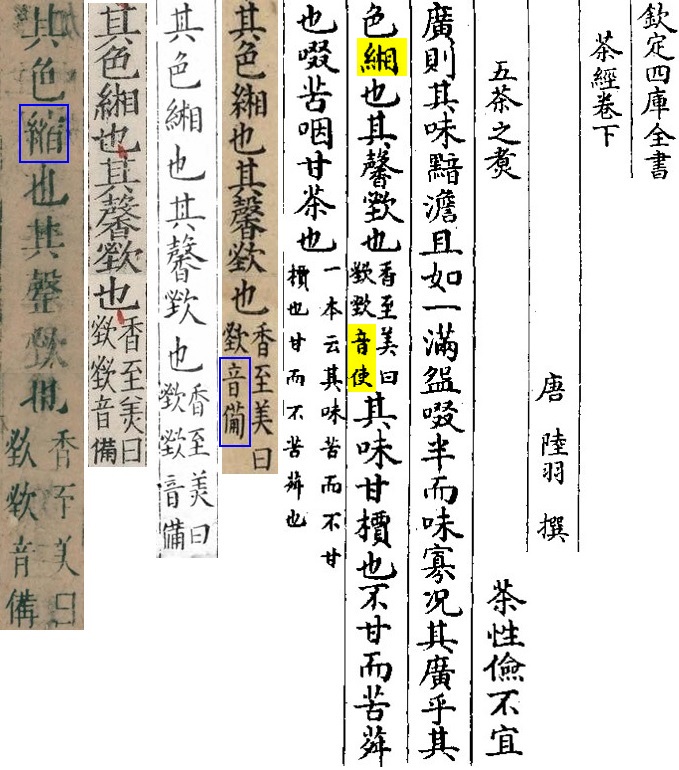 欽定四庫全書
茶經卷下
唐 陸羽 撰
五茶之煑
茶性儉不宜
廣則其味黯澹且如一滿盌啜半而味寡况其廣乎其
色緗也其馨𣣌也香至美曰𣣌𣣌音使其味甘檟也不甘而苦荈
也啜苦咽甘茶也一本云其味苦而不甘檟也甘而不苦荈也
其色緗也其馨𣣌也香至美曰𣣌音備
其色緗也其馨𣣌也香至美曰𣣌𣣌音備
其色緗也其馨𣣌也香至美曰𣣌𣣌音備
其色縮也其馨𣣌也香至美曰𣣌𣣌音備